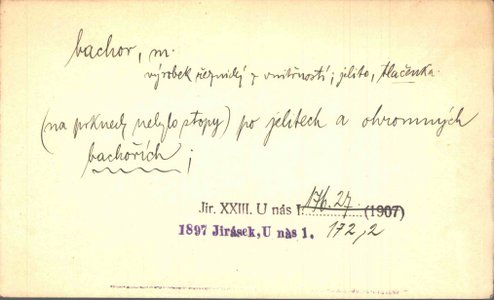 bachor, m.
výrobek řeznický z vnitřností; jelito, tlačenka.
(na prknech nebylo stopy) po jelitech a ohromných
bachořích;
Jir. XXIII. U nás I. 176.27 (1907)
1897 Jirásek, U nás 1. 172,2